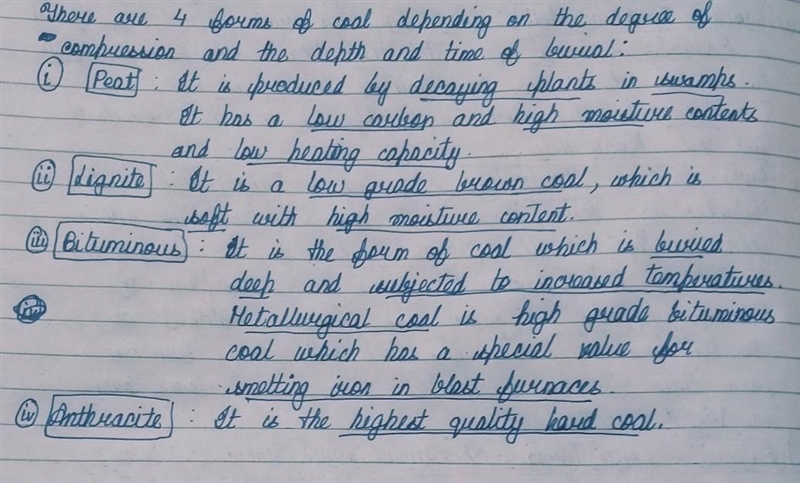 There are 4 forms of coal depending on the degree of
compression and the depth and time of burial:
(i) Peat : It is produced by decaying plants in swamps.
It has a low carbon and high moisture contents
and low heating capacity.
(ii) Lignite : It is a low grade brown coal, which is
soft with high moisture content.
(iii) Bituminous : It is the form of coal which is buried
deep and subjected to increased temperatures.
Metallurgical coal is high grade bituminous
coal which has a special value for
smelting iron in blast furnaces.
(iv) Anthracite : It is the highest quality hard coal.